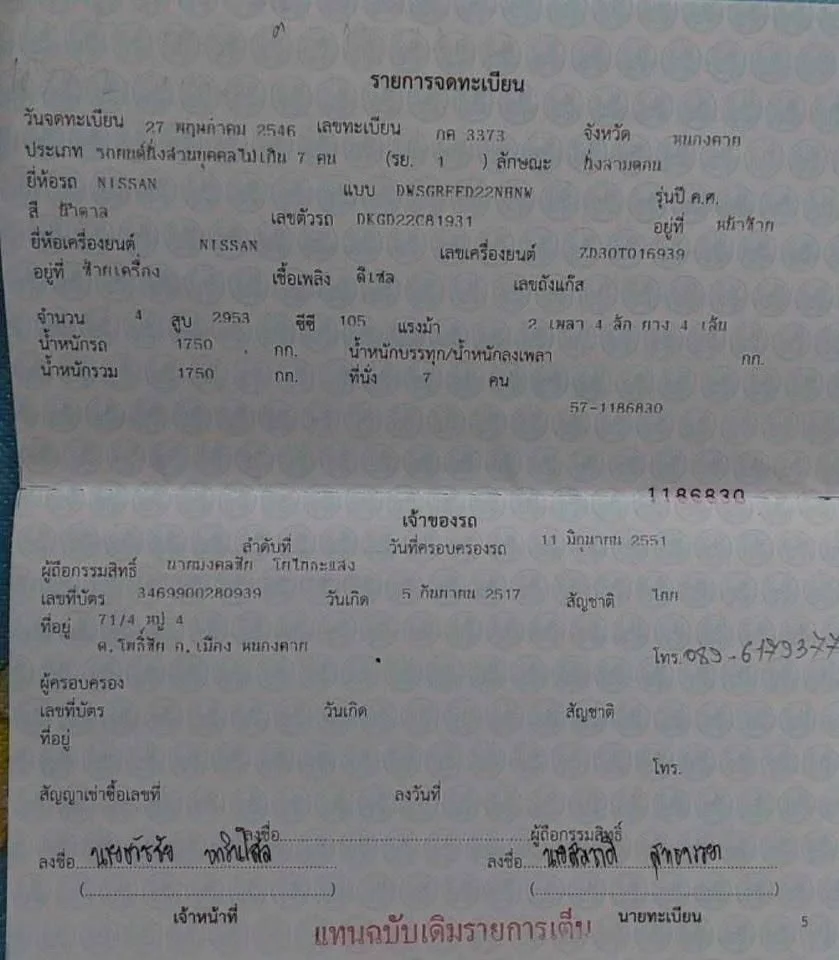 รายการจดทะเบียน
วันจดทะเบียน 27 พฤษภาคม 2546 เลขทะเบียน กค 3373 จังหวัด หนองคาย
ประเภท รถยนต์นั่งส่วนบุคคลไม่เกิน 7 คน (รย. 1 ) ลักษณะ นั่งสามตอน
ยี่ห้อรถ NISSAN แบบ รุ่นปี ค.ศ.
สี น้ำตาล เลขตัวรถ DKGD22C81931 อยู่ที่ หน้าซ้าย
ยี่ห้อเครื่องยนต์ NISSAN เลขเครื่องยนต์ ZD30T016939
อยู่ที่ ซ้ายเครื่อง เชื้อเพลิง ดีเซล เลขถังแก๊ส
จำนวน 4 สูบ 2953 ซีซี 105 แรงม้า 2 เพลา 4 ล้อ ยาง 4 เส้น
น้ำหนักรถ 1750 กก. น้ำหนักบรรทุก/น้ำหนักลงเพลา กก.
น้ำหนักรวม 1750 กก. ที่นั่ง 7 คน
57-1186830
1186830
เจ้าของรถ
ลำดับที่ วันที่ครอบครองรถ 11 มิถุนายน 2551
ผู้ถือกรรมสิทธิ์ นายมงคลชัย
เลขที่บัตร 3469900280939 วันเกิด 5 กันยายน 2517 สัญชาติ ไทย
ที่อยู่ 71/4 หมู่ 4
ต.โพธิ์ชัย อ.เมือง หนองคาย
โทร. 089-6179377
ผู้ครอบครอง
เลขที่บัตร วันเกิด สัญชาติ
ที่อยู่
โทร.
สัญญาเช่าซื้อเลขที่ ลงวันที่
ลงชื่อ ผู้ถือกรรมสิทธิ์
ลงชื่อ ลงชื่อ
เจ้าหน้าที่ นายทะเบียน
แทนฉบับเดิมรายการเต็ม
5